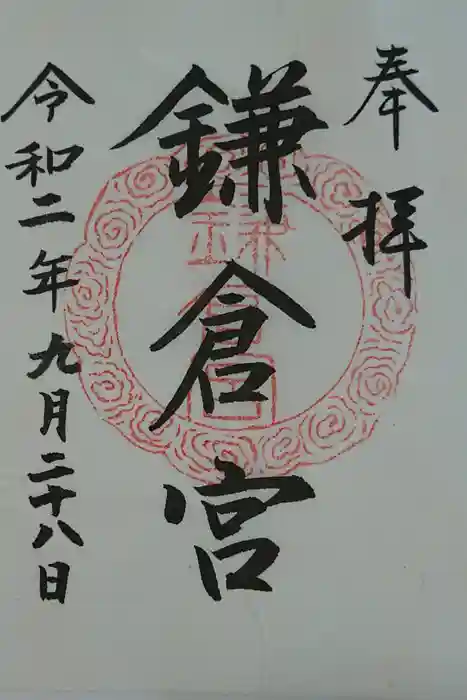 奉拝
鎌倉宮
令和二年九月二十八日